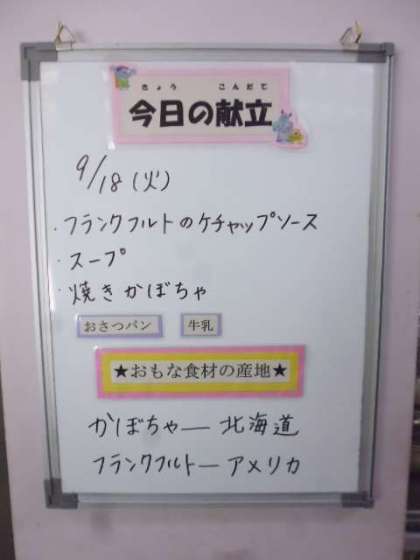 きょう こんだて
今日の献立
9/18(火)
・フランクフルトのケチャップソース
・スープ
・焼きかぼちゃ
おさつパン 牛乳
★おもな食材の産地★
かぼちゃー北海道
フランクフルトーアメリカ